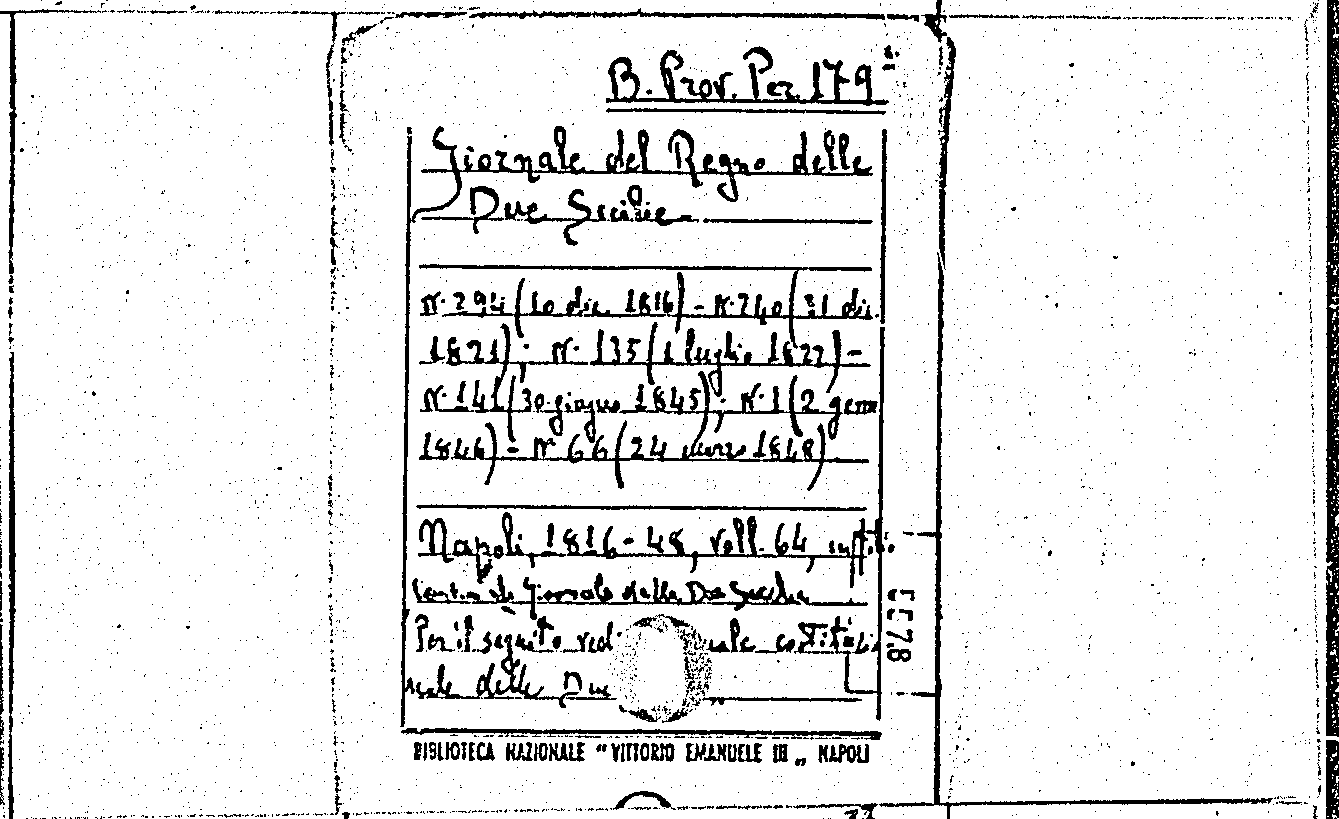 B. Prov. Per. 179
Giornale del Regno delle
Due Sicilie
N. 294 (10 dic. 1816) - N. 240 (31 dic.
1821); N. 135 (1 luglio 1822) -
N. 141 (30 giugno 1845); N. 1 (2 genn
1846) - N. 66 (24 marzo 1848)
Napoli, 1816-48, voll. 64, in fol.
Giornale delle Due Sicilie
Per il seguito ved costituzio
nale delle Due
BIBLIOTECA NAZIONALE "VITTORIO EMANUELE III„ NAPOLI